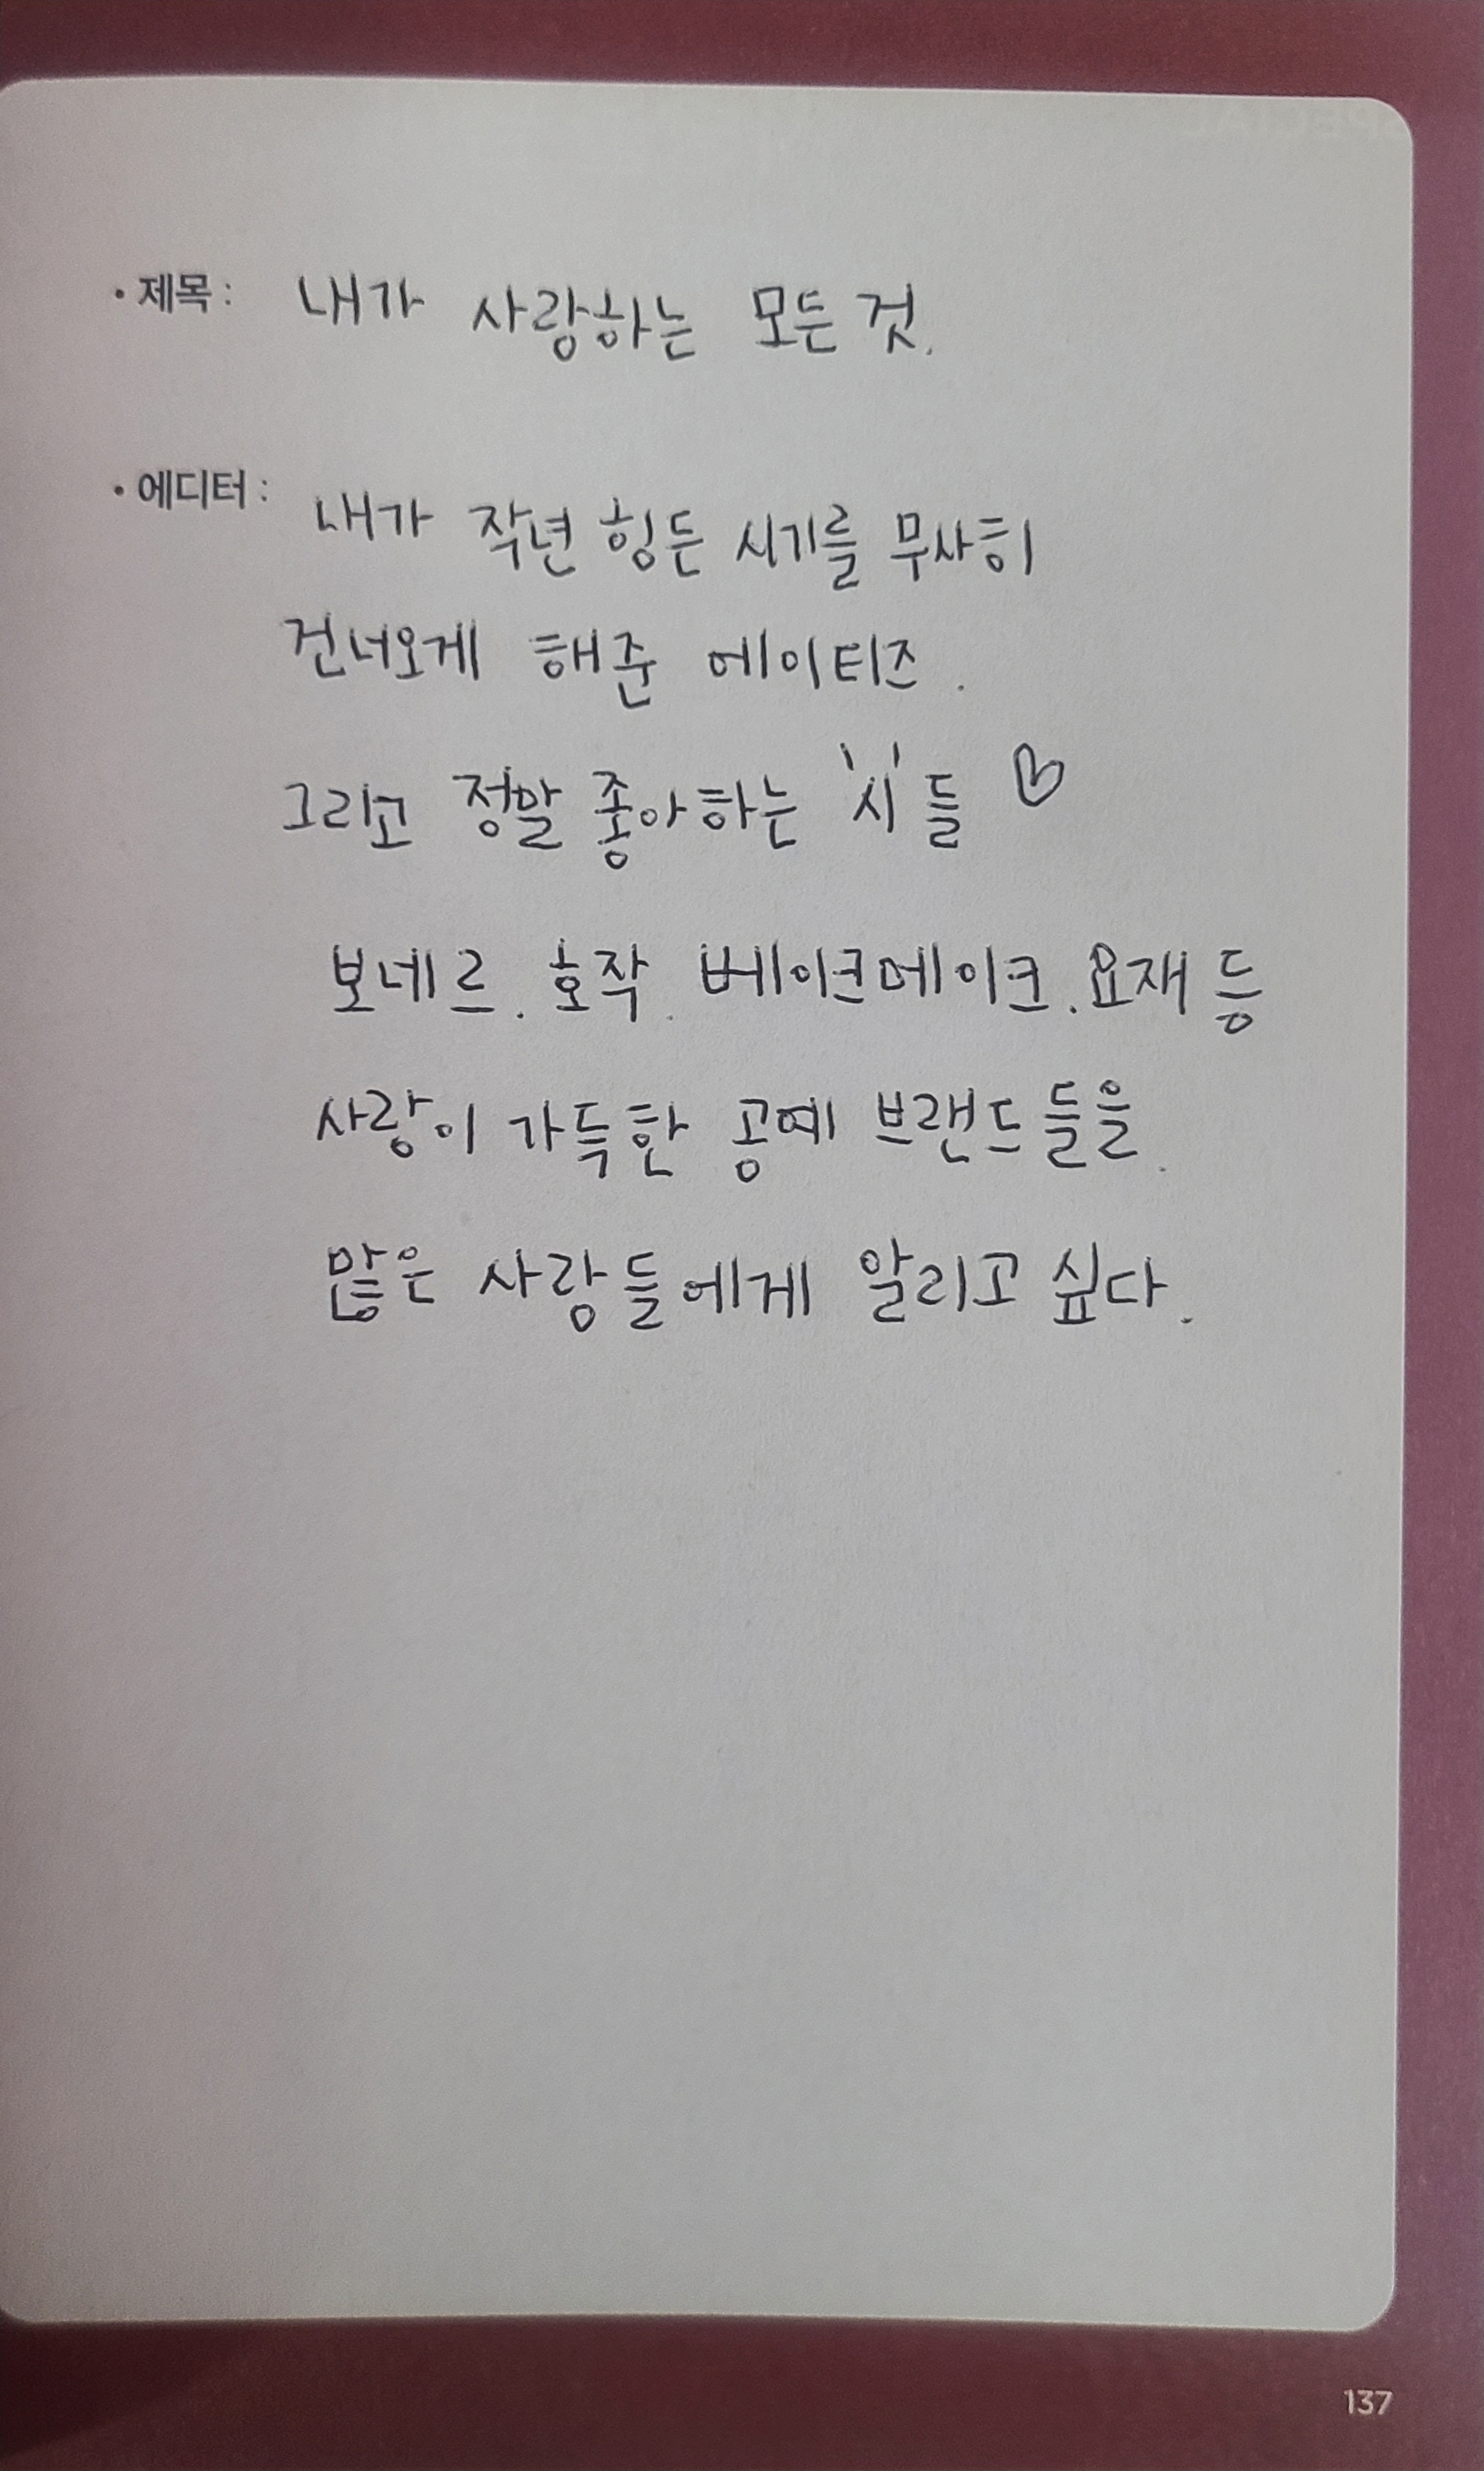 • 제목 : 내가 사랑하는 모든 것.
• 에디터 : 내가 작년 힘든 시기를 무사히
건너오게 해준 에이티즈.
그리고 정말 좋아하는 '시'들 ♡
보네르. 호작. 베이크메이크. 요재 등
사랑이 가득한 공예 브랜드들을.
많은 사람들에게 알리고 싶다.
137